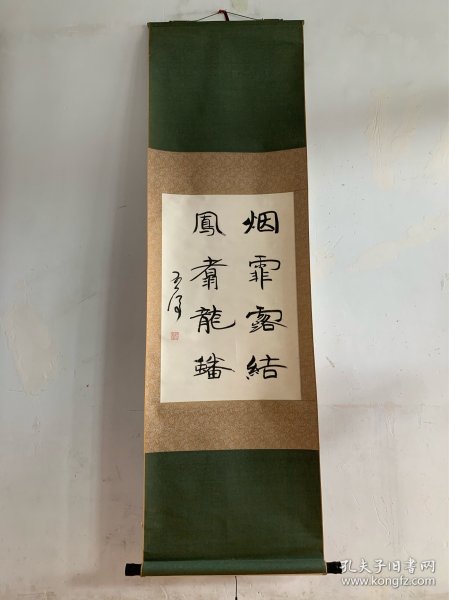 烟霏露結
鳳翥龍蟠
孔夫子旧书网
www.kongfz.com